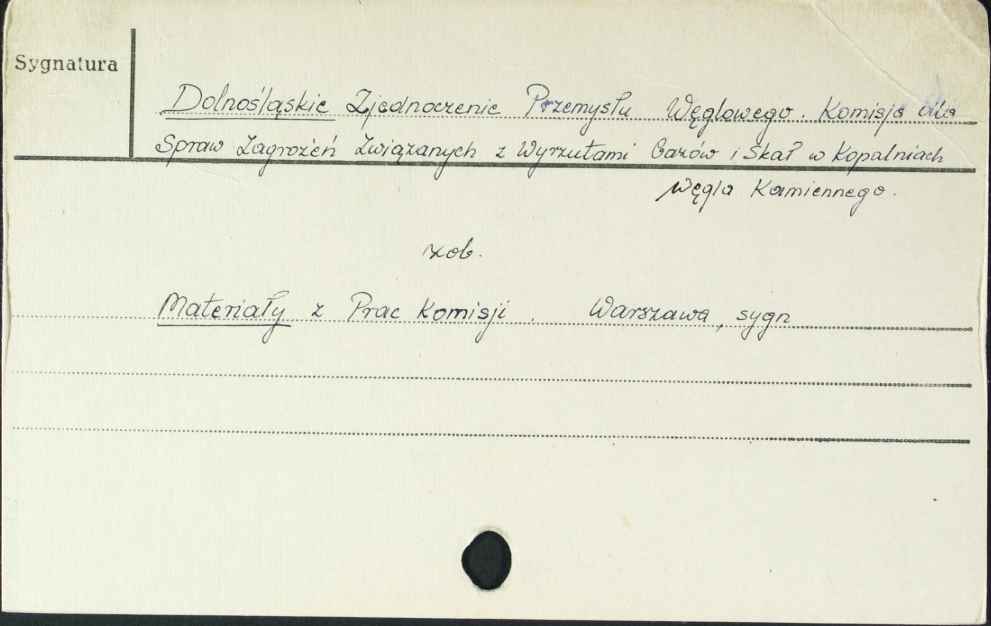 Sygnatura
Dolnośląskie Zjednoczenie Przemysłu Węglowego. Komisja dla
Spraw Zagrożeń Związanych z Wyrzutami Gazów i Skał w Kopalniach
Węgla Kamiennego.
zob.
Materiały z Prac Komisji. Warszawa, sygn